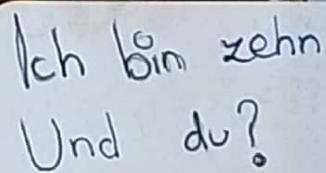 Ich bin zehn
Und du?